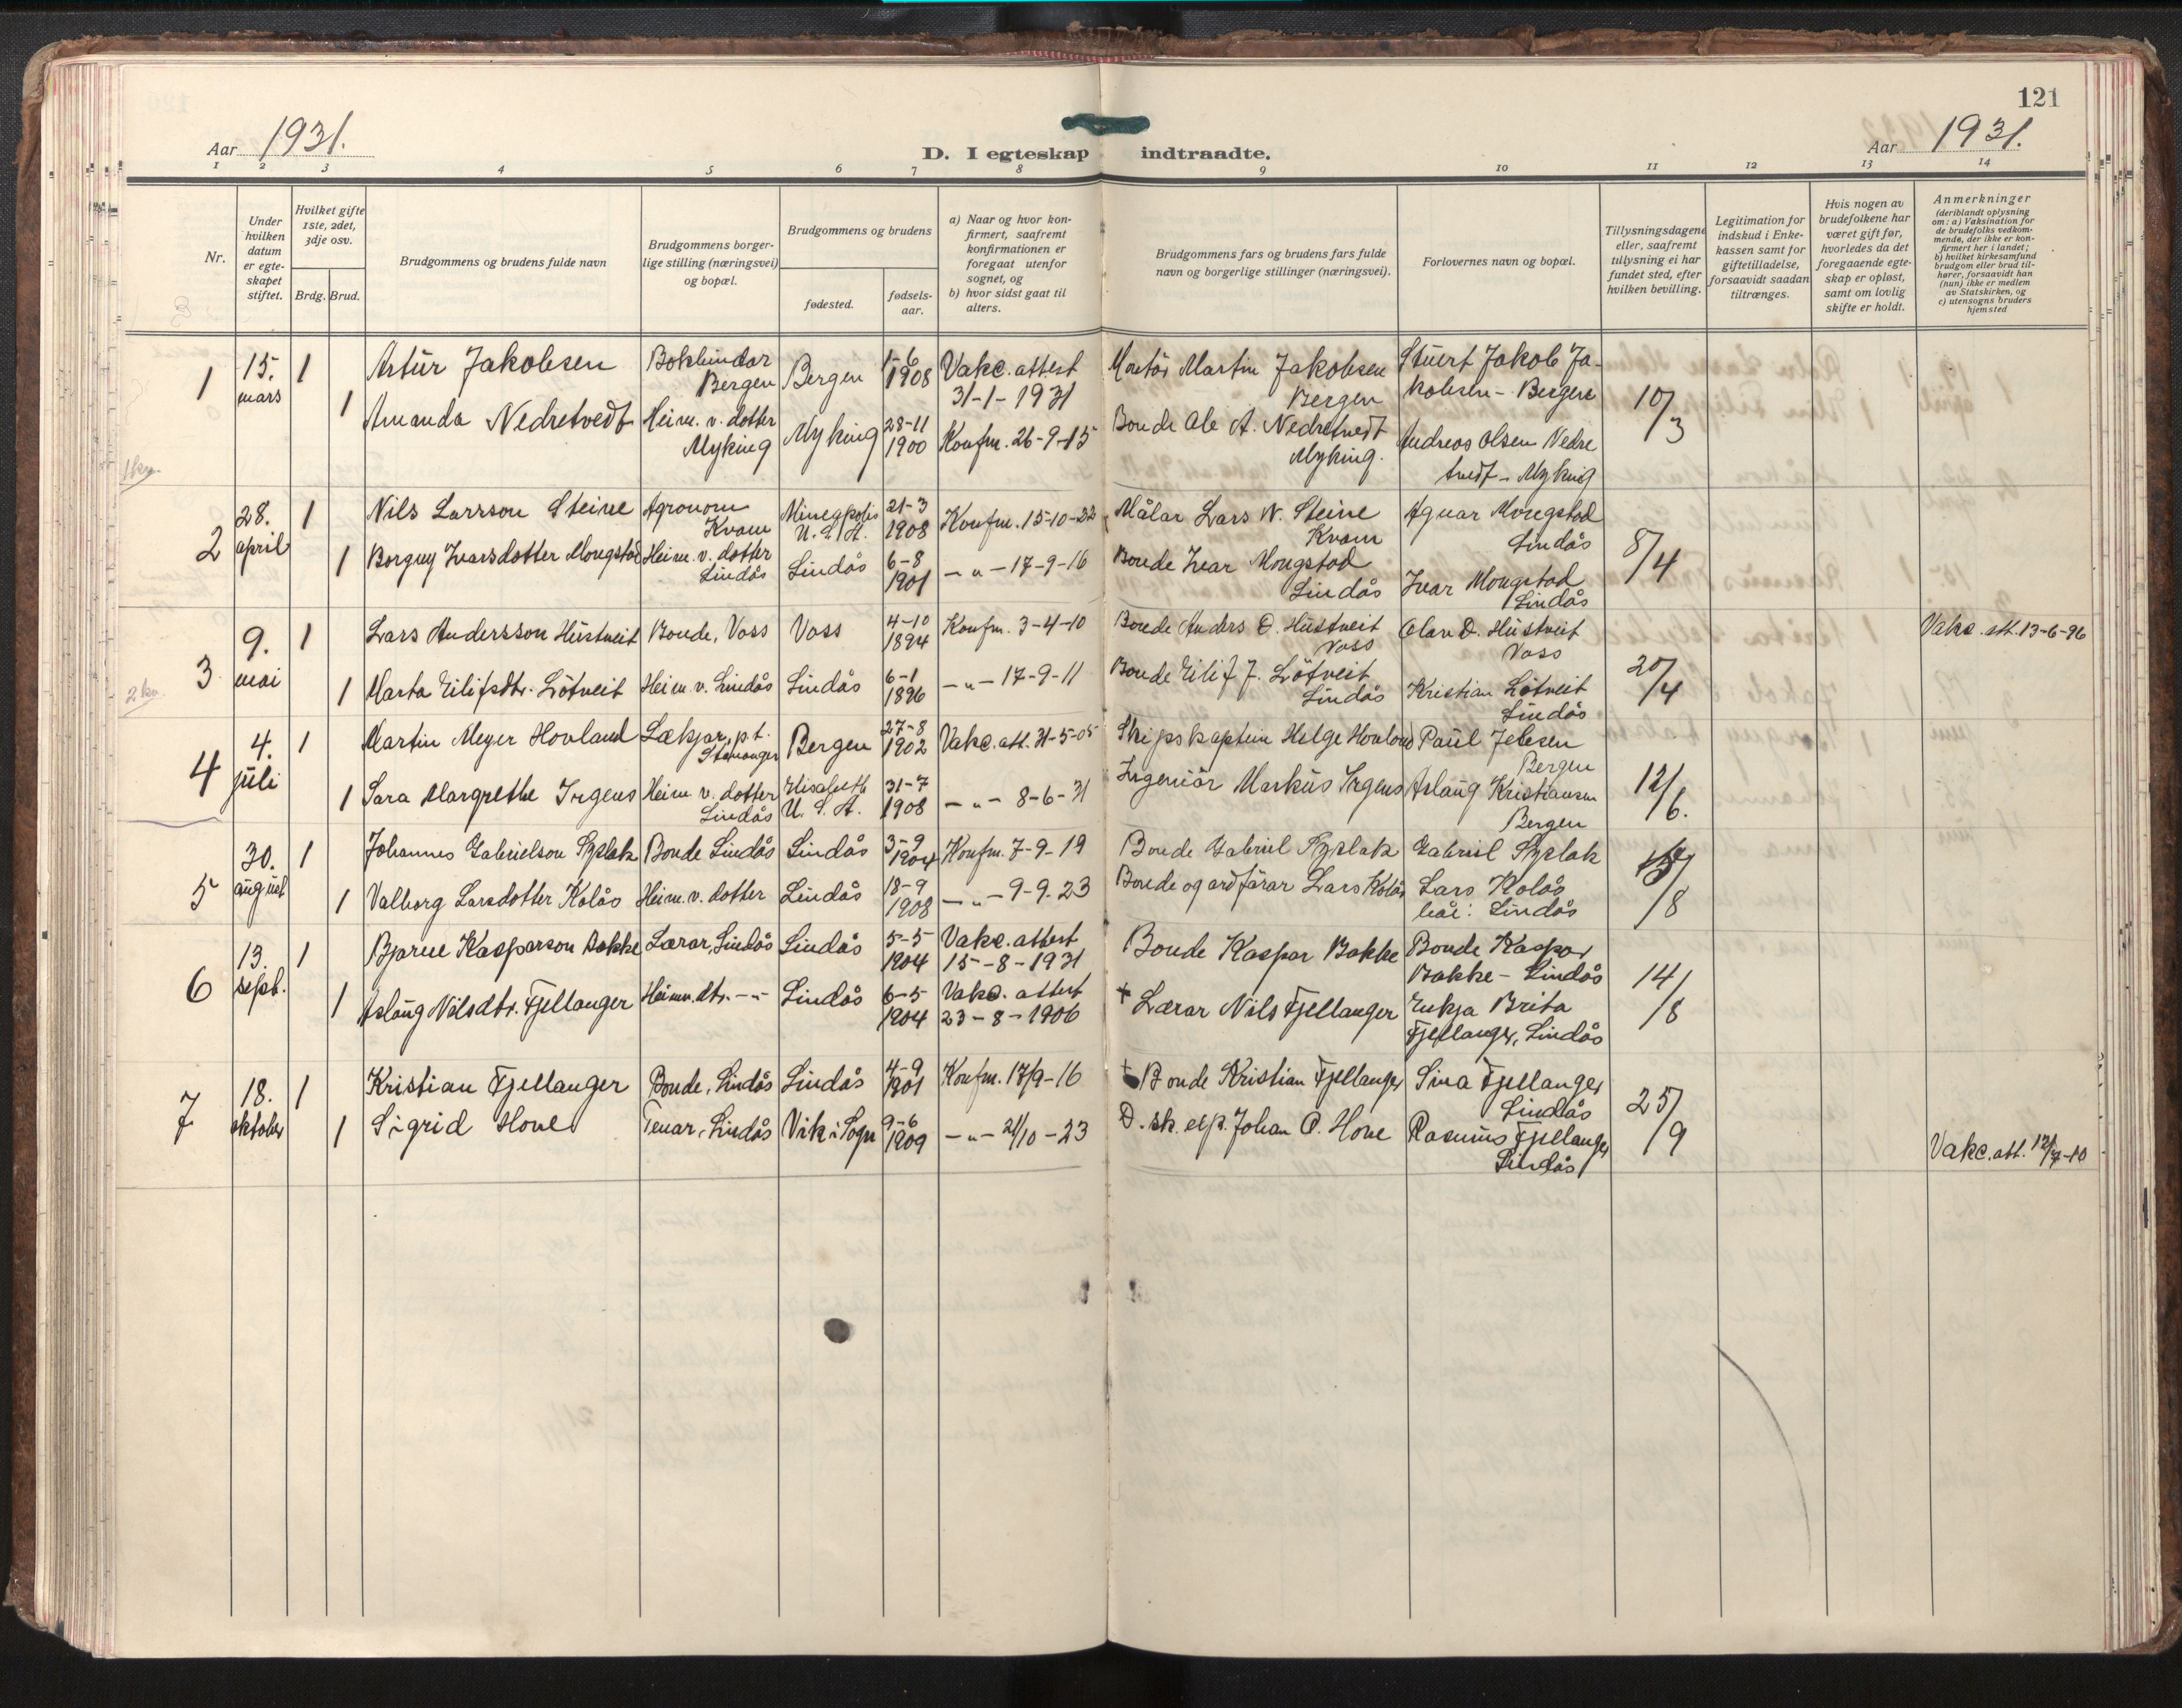 121
Aar 1931.
D. I egteskap indtraadte.
Aar 1931.
1 2 3 4 5 6 7 8 9 10 11 12 13 14
Nr.
Under hvilken datum er egteskapet stiftet.
Hvilket gifte 1ste, 2det, 3dje osv.
Brdg. Brud.
Brudgommens og brudens fulde navn
Brudgommens borgerlige stilling (næringsvei) og bopæl.
Brudgommens og brudens
fødested.
fødselsaar.
a) Naar og hvor konfirmert, saafremt konfirmationen er foregaat utenfor sognet, og
b) hvor sidst gaat til alters.
Brudgommens fars og brudens fars fulde navn og borgerlige stillinger (næringsvei).
Forlovernes navn og bopæl.
Tillysningsdagene eller, saafremt tillysning ei har fundet sted, efter hvilken bevilling.
Legitimation for indskud i Enkekassen samt for giftetilladelse, forsaavidt saadan tiltrænges.
Hvis nogen av brudefolkene har været gift før, hvorledes da det foregaaende egteskap er opløst, samt om lovlig skifte er holdt.
Anmerkninger
(deriblandt oplysning om: a) Vaksination for de brudefolks vedkommende, der ikke er konfirmert her i landet; b) hvilket kirkesamfund brudgom eller brud tilhører, forsaavidt han (hun) ikke er medlem av Statskirken, og c) utensogns bruders hjemsted
1 15. mars 1 Artur Jakobsen Bokbindar Bergen Bergen 1-6 1908 Vakc. attest 31-1-1931 Montør Martin Jakobsen Bergen Stuert Jakob Jakobsen - Bergen 10/3
1 Amanda Nedretvedt Heim. v. dotter Myking Myking 28-11 1900 Konfm. 26-9-15 Bonde Ole A. Nedretvedt Myking. Andreas Olsen Nedretvedt - Myking
1 kv.
2 28. april 1 Nils Larsson Steine Agronom Kvam Minneapolis U. S. A. 21-3 1908 Konfm. 15-10-22 Målar Lars N. Steine Kvam Agnar Mongstad Lindås 8/4
1 Borgny Ivarsdotter Mongstad Heim. v. dotter Lindås Lindås 6-8 1901 - " - 17-9-16 Bonde Ivar Mongstad Lindås Ivar Mongstad Lindås
3 9. mai 1 Lars Andersson Hustveit Bonde, Voss Voss 4-10 1894 Konfm. 3-4-10 Bonde Anders O. Hustveit Voss Olav O. Hustveit Voss 20/4 Vakc. att. 13-6-96
2 kv. 1 Marta Eilifsdtr. Løtveit Heim. v. Lindås Lindås 6-1 1896 - " - 17-9-11 Bonde Eilif J. Løtveit Lindås Kristian Løtveit Lindås
4 4. juli 1 Martin Meyer Hovland Lækjar, p.t. Stavanger Bergen 27-8 1902 Vakc. att. 31-5-05 Skipskaptein Helge Hovland Paul Jebsen Bergen 12/6.
1 Sara Margrethe Irgens Heim v. dotter Lindås Elisabeth U. S. A. 31-7 1908 - " - 8-6-31 Ingeniør Markus Irgens Aslaug Kristiansen Bergen
5 30. august 1 Johannes Gabrielson Syslak Bonde Lindås Lindås 3-9 1904 Konfm. 7-9-19 Bonde Gabriel Syslak Gabriel Syslak /8
1 Valborg Larsdotter Kolås Heim. v. dotter Lindås 18-9 1908 - " - 9-9-23 Bonde og ordførar Lars Kolås Lars Kolås båe: Lindås
6 13. sept. 1 Bjarne Kasparson Bakke Lærar, Lindås Lindås 5-5 1904 Vakc. attest 15-8-1931 Bonde Kaspar Bakke Bonde Kaspar Bakke - Lindås 14/8
1 Aslaug Nilsdtr. Fjellanger Heimv. dtr. - " - Lindås 6-5 1904 Vakc. attest 23-8-1906 + Lærar Nils Fjellanger Enkja Brita Fjellanger, Lindås
7 18. oktober 1 Kristian Fjellanger Bonde, Lindås Lindås 4-9 1901 Konfm. 17/9-16 + Bonde Kristian Fjellanger Sina Fjellanger Lindås 25/9
1 Sigrid Hove Tenar, Lindås Vik i Sogn 9-6 1909 - " - 21/10-23 D. sk. exp. Johan O. Hove Rasmus Fjellanger Lindås Vakc. att. 12/7-10